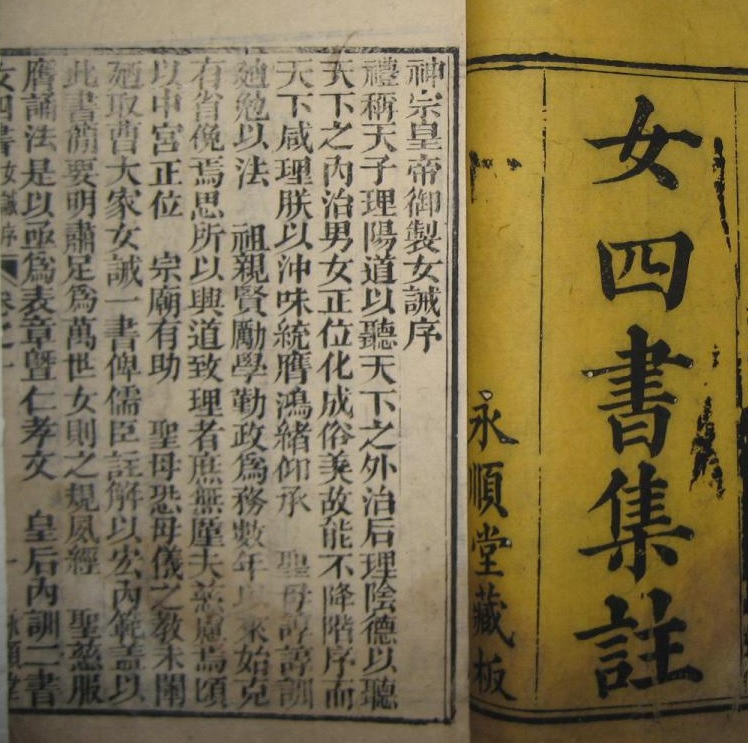 女四書集註
永順堂藏板
神宗皇帝御製女誡序
禮稱天子理陽道以聽天下之外治后理陰德以聽
天下之內治男女正位化成俗美故能不降階序而
天下咸理朕以沖味統膺鴻緒仰承 聖母諄諄訓
廸勉以法 祖親賢勵學勤政爲務數年以來始克
有省俊焉思所以興道致理者庶無厪夫慈慮焉頃
以中宮正位 宗廟有助 聖母恐母儀之教未闡
廼取曹大家女誡一書俾儒臣註解以宏內範蓋以
此書簡要明肅足爲萬世女則之規夙經 聖慈服
膺誦法是以亟爲表章曁仁孝文 皇后內訓二書
女四書 女誡序 卷之一 一 永順堂